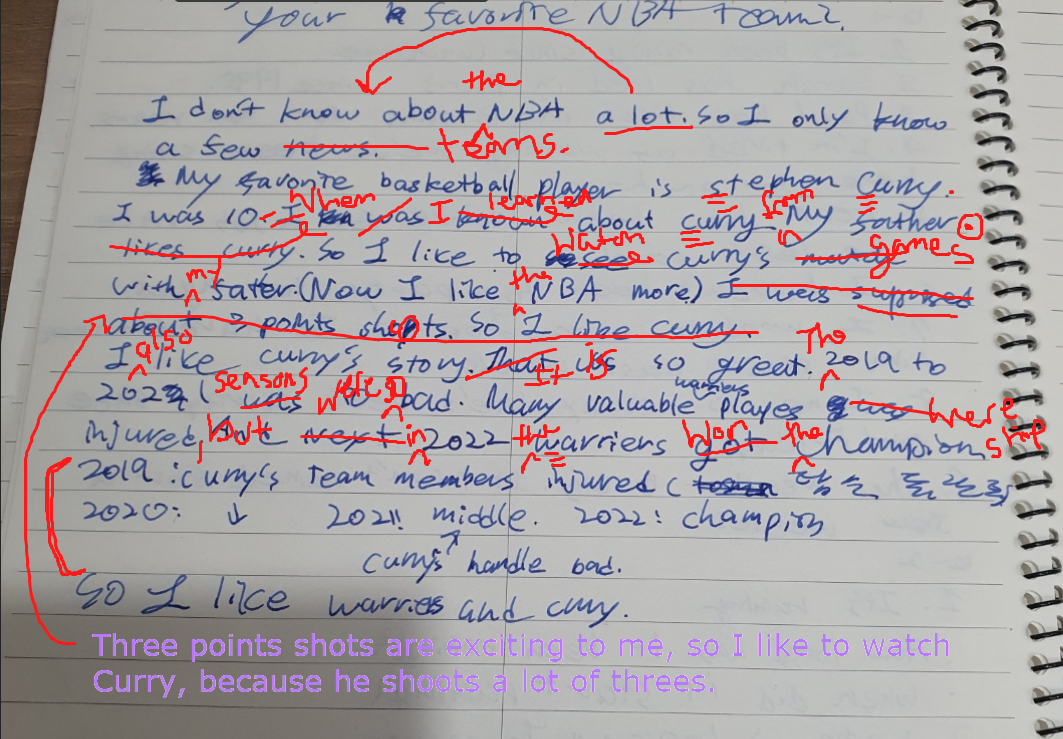 your favorite NBA team?
the
I don't know about NBA a lot. So I only know
a few news. teams.
My favorite basketball player is stephen Curry.
When learned from
I was 10. I was I know about curry. My father
watch games
likes curry. So I like to see curry's match
my the
with fater. (Now I like NBA more) I was supposed
about 3 points shots. So I like curry.
also It is The
I like curry's story. That was so great. 2019 to
seasons were warriers
2021 was bad. Many valuable playes was were
but in the won the ship
injured, next 2022 warriers got champion
2019 : curry's team members injured (
2020: ↓ 2021: middle. 2022: champion
curry's handle bad.
So I like warries and curry.
Three points shots are exciting to me, so I like to watch
Curry, because he shoots a lot of threes.